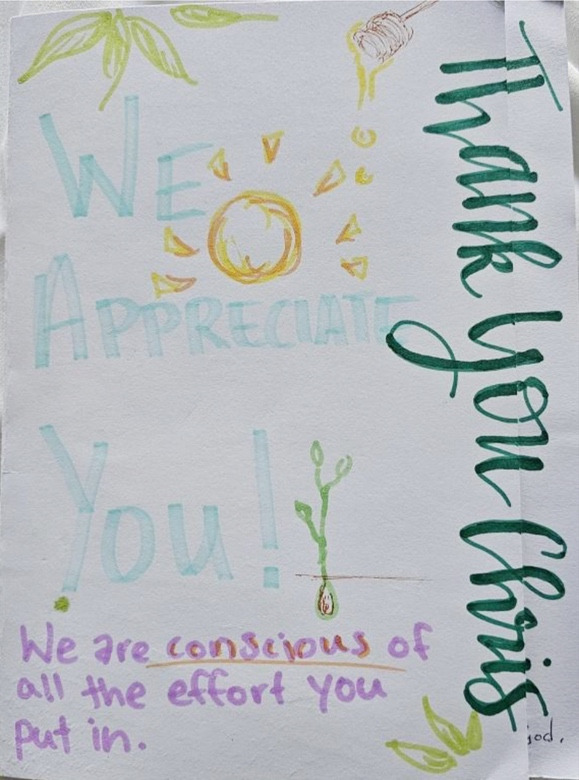 We
Appreciate
You!
We are conscious of
all the effort you
put in.
Thank you Chris